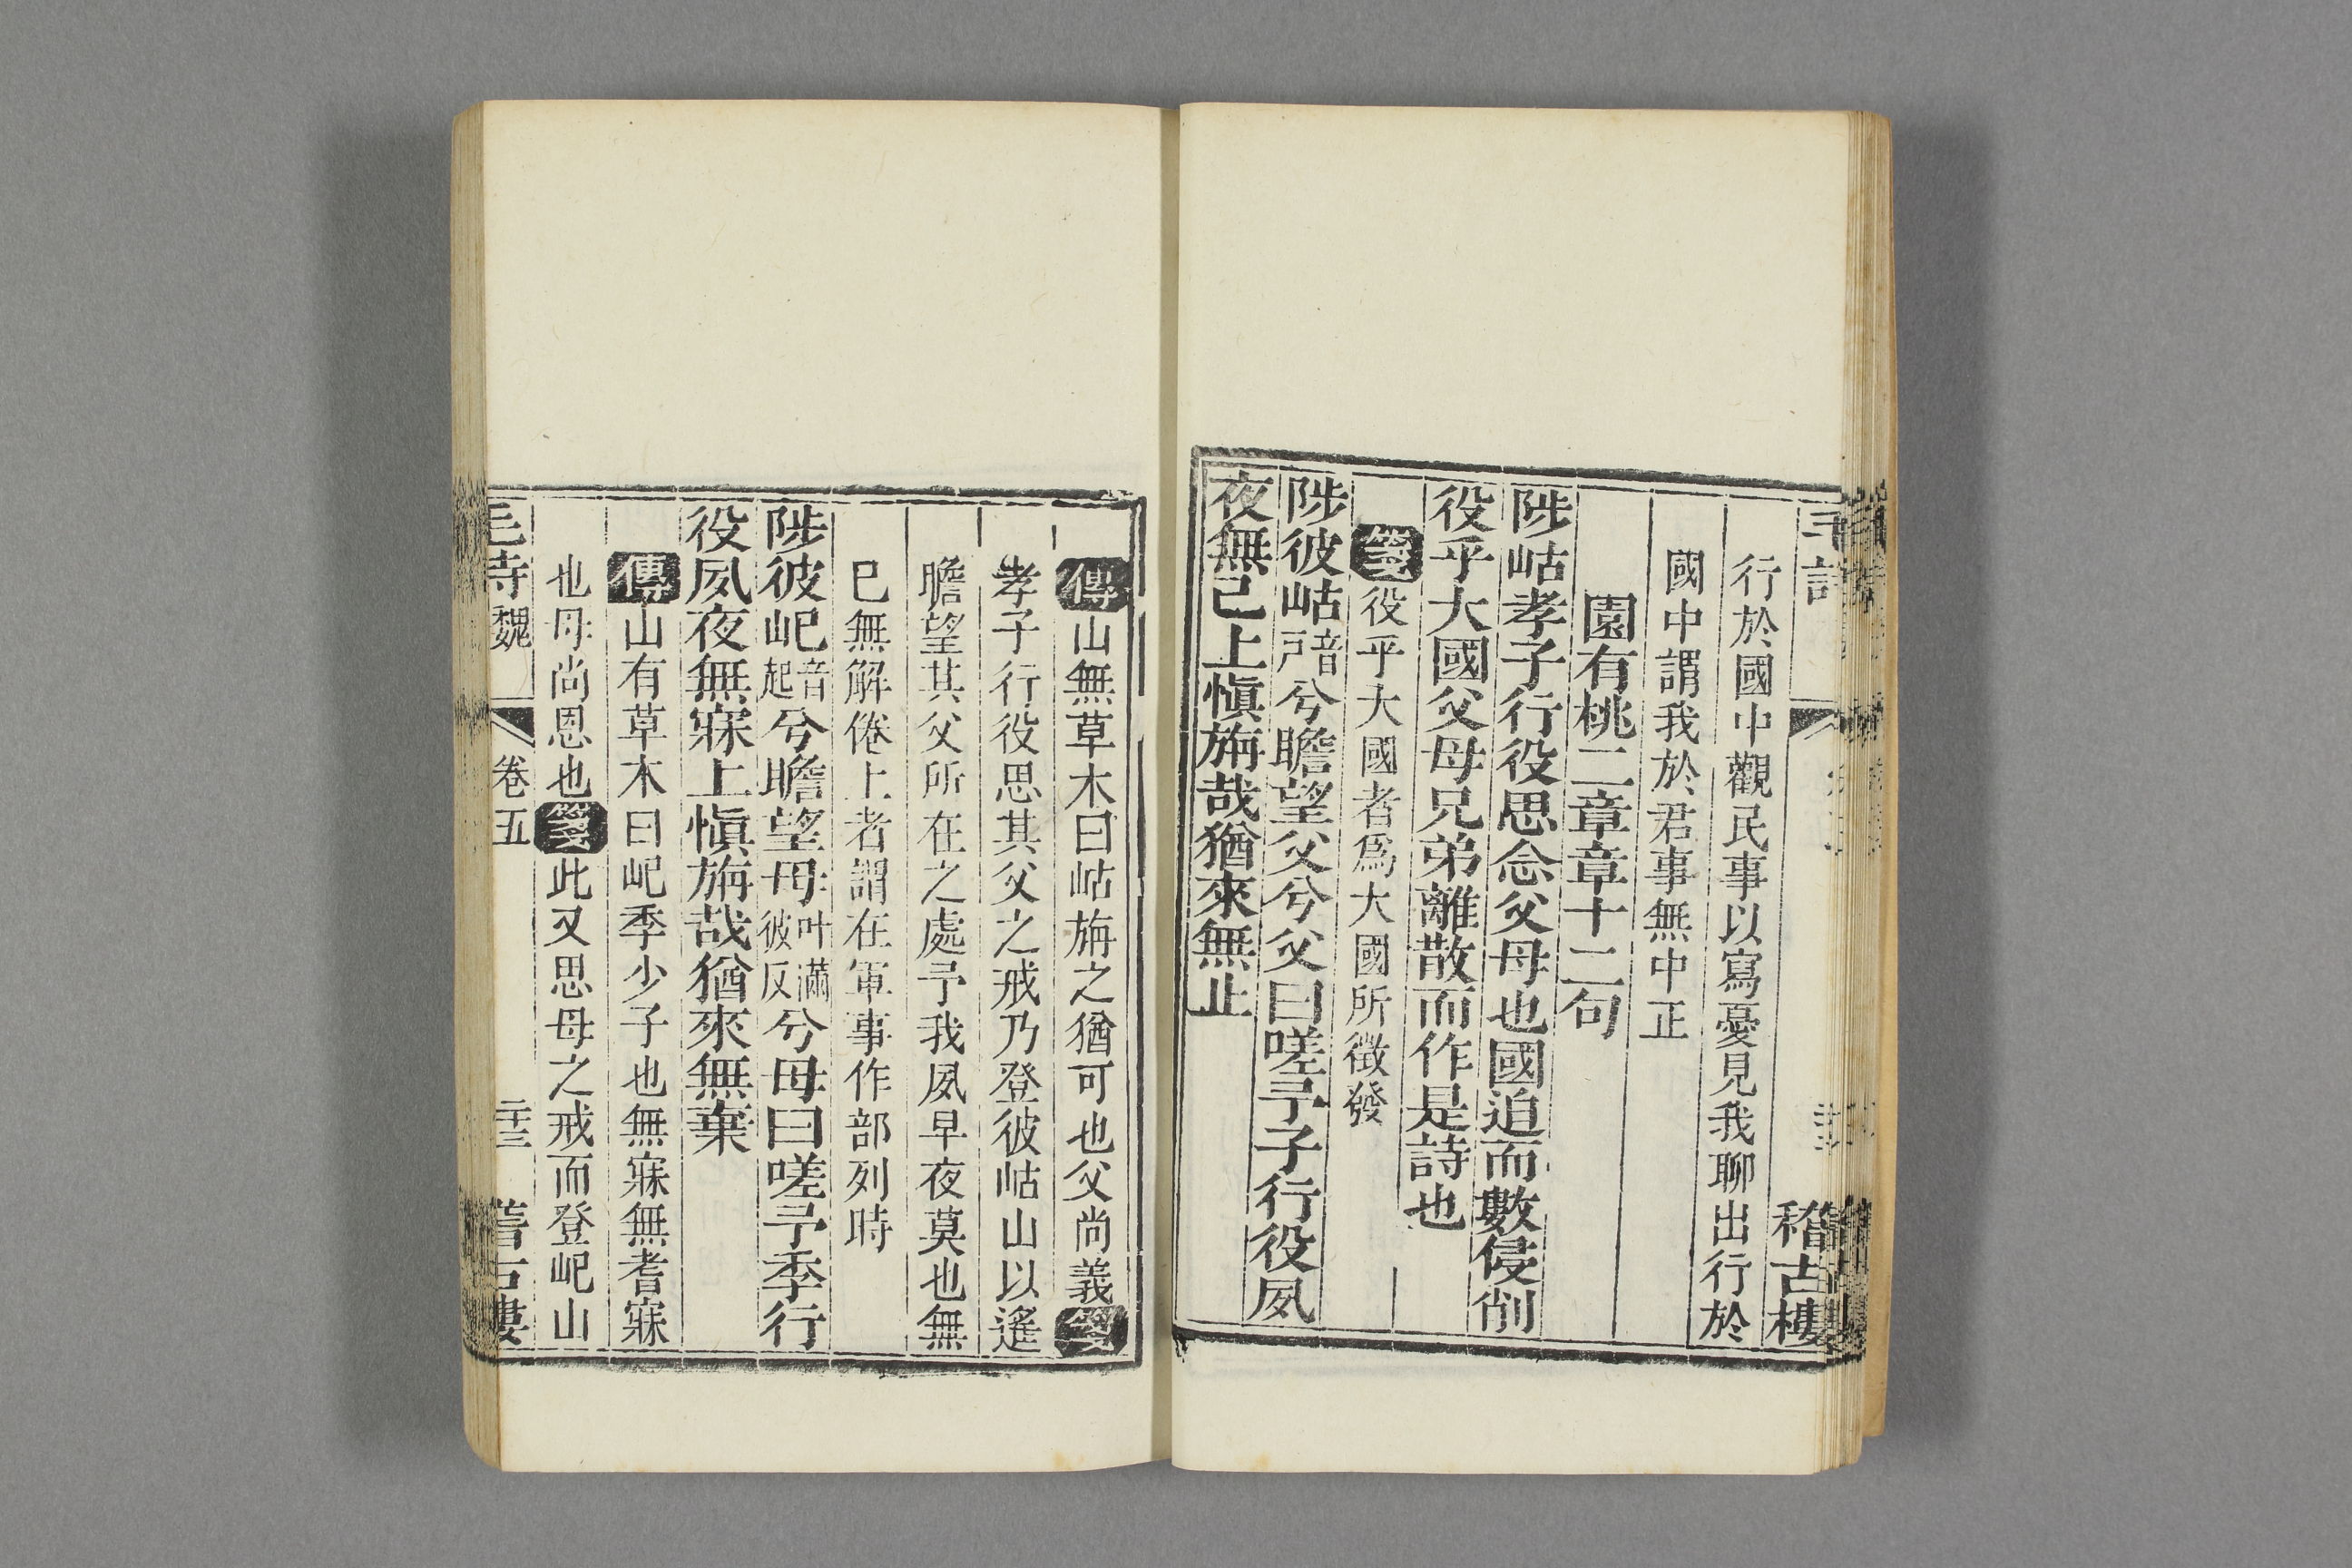 稽古樓
行於國中觀民事以寫憂見我聊出行於
國中謂我於君事無中正
園有桃二章章十二句
陟岵孝子行役思念父母也國迫而數侵削
役乎大國父母兄弟離散而作是詩也
箋役乎大國者爲大國所徵發
陟彼岵音戶兮瞻望父兮父曰嗟予子行役夙
夜無已上愼旃哉猶來無止
傳山無草木曰岵旃之猶可也父尚義箋
孝子行役思其父之戒乃登彼岵山以遙
瞻望其父所在之處予我夙早夜莫也無
已無解倦上者謂在軍事作部列時
陟彼屺音起兮瞻望母叶滿彼反兮母曰嗟予季行
役夙夜無寐上愼旃哉猶來無棄
傳山有草木曰屺季少子也無寐無耆寐
也母尚恩也箋此又思母之戒而登屺山
毛詩魏 卷五 二十三 稽古樓